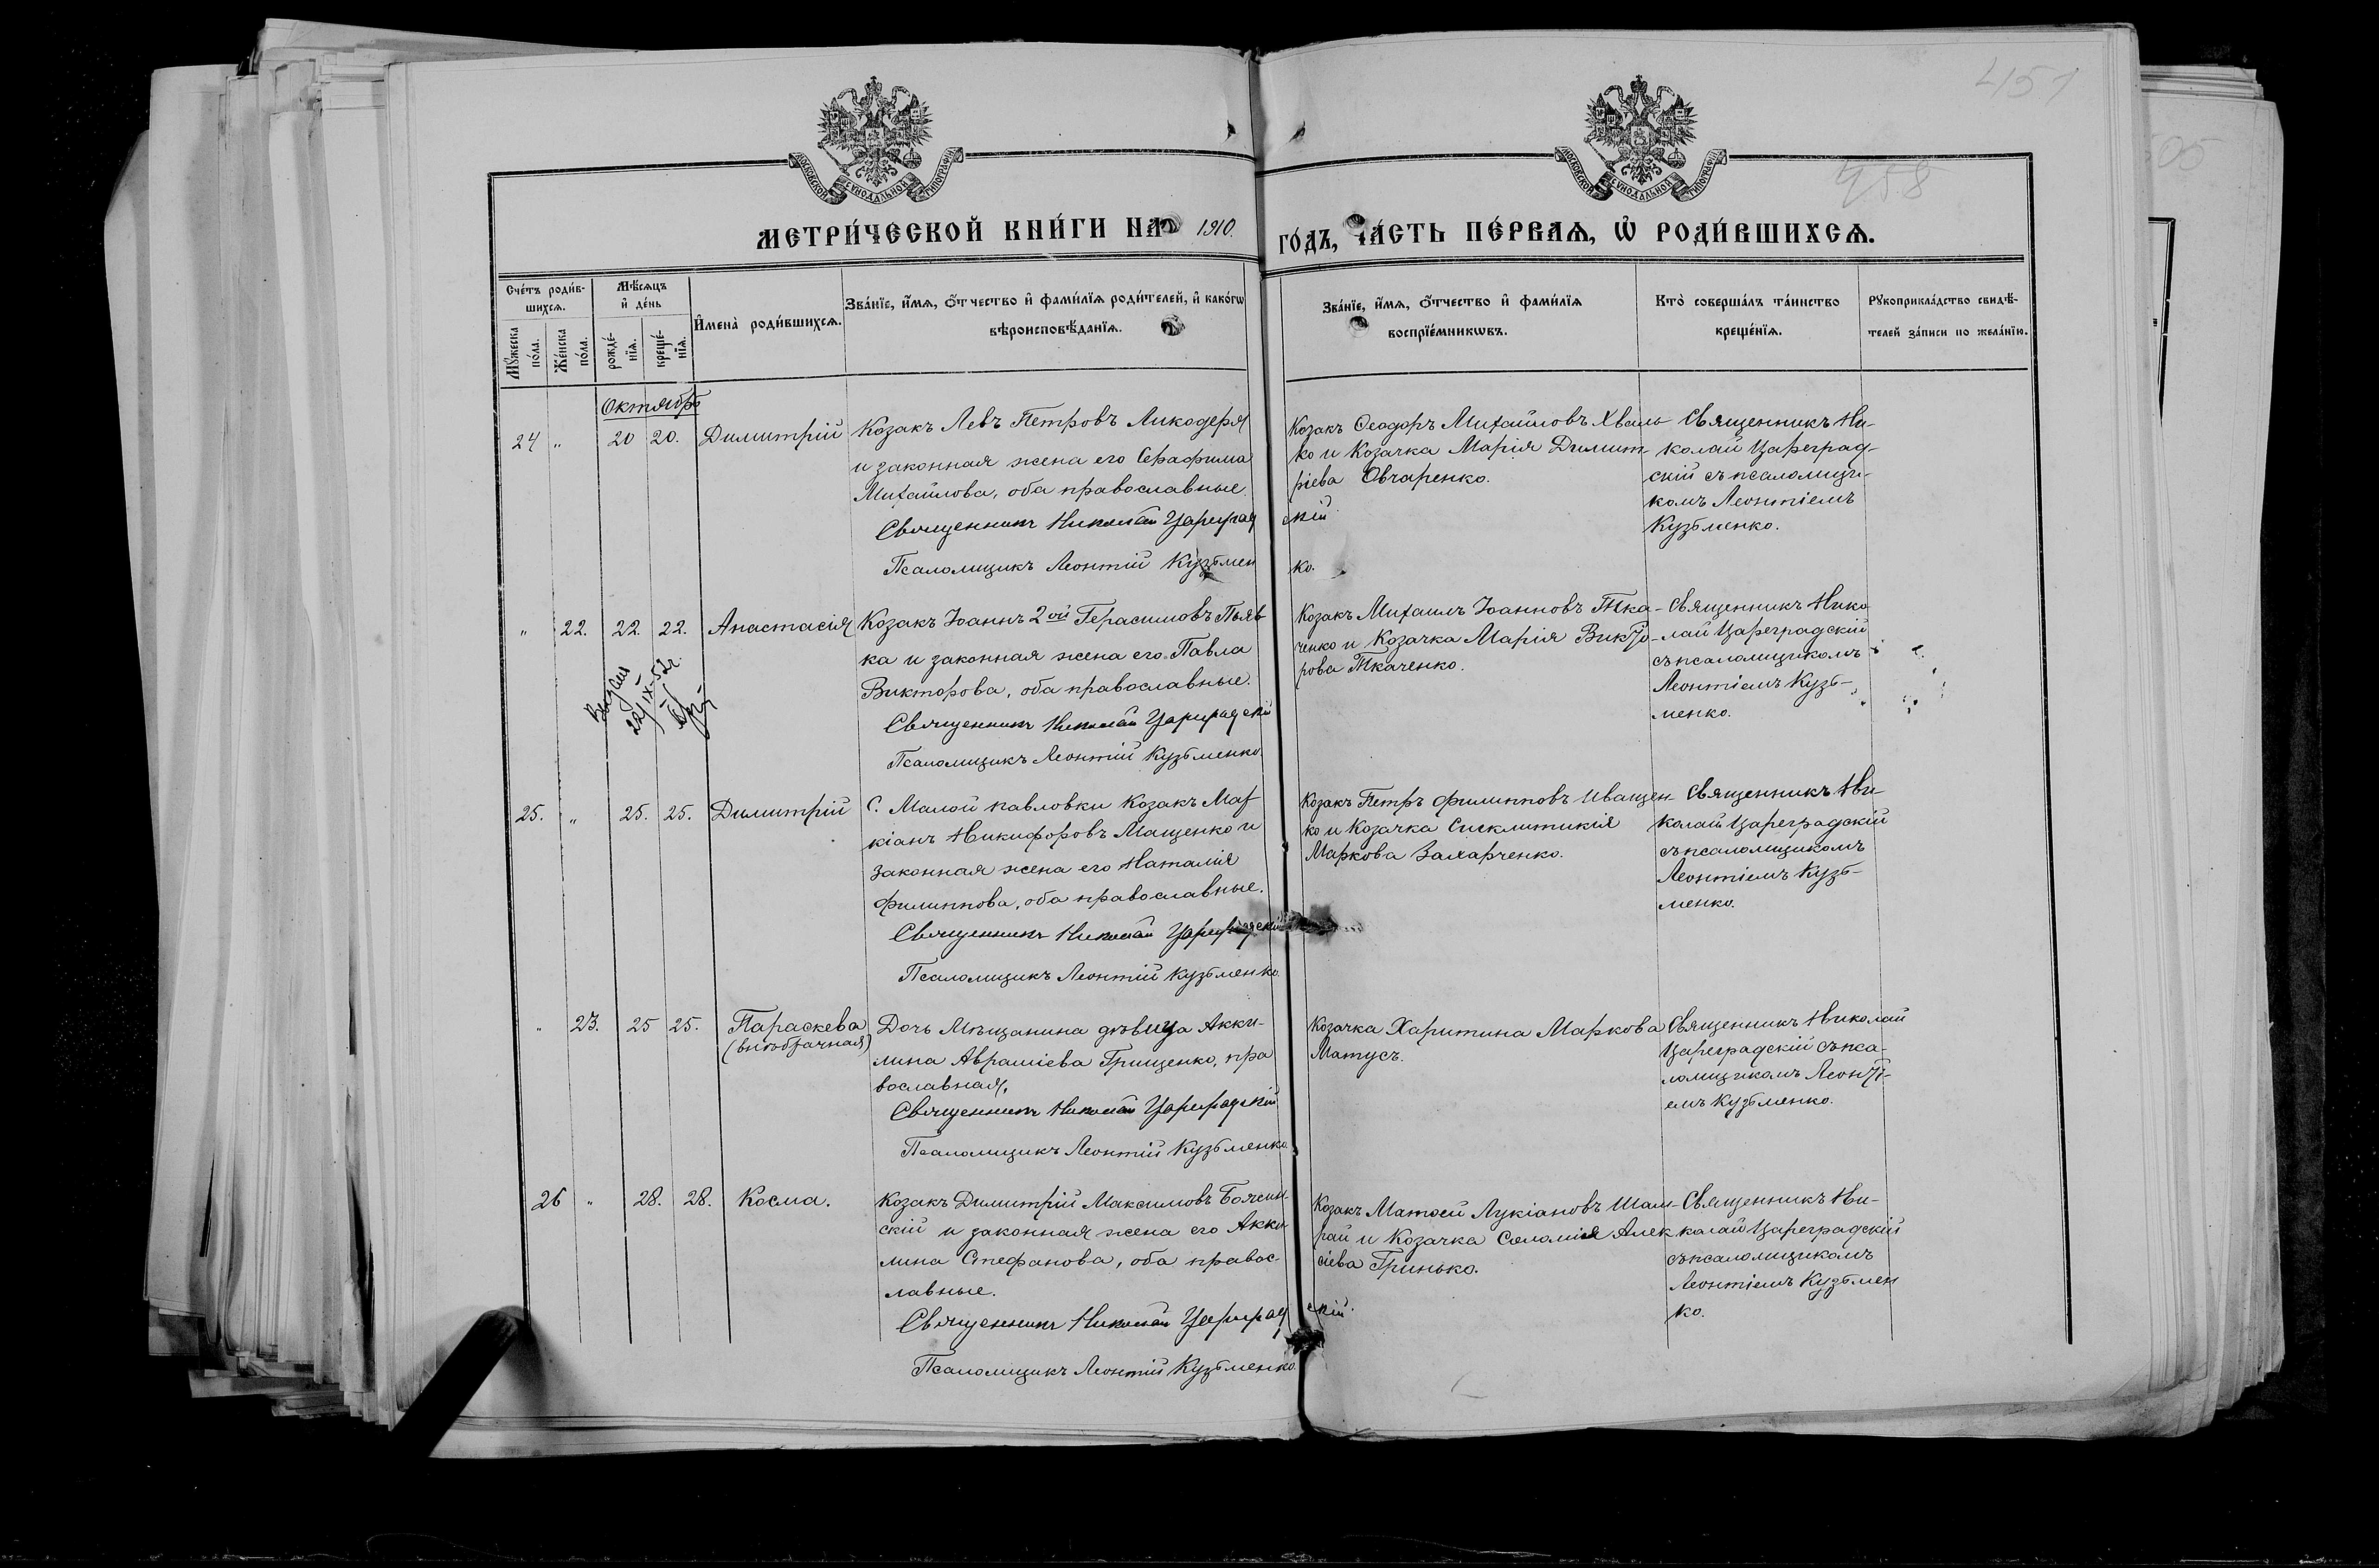 451
458
505
МОСКОВСКОЙ СѴНОДАЛЬНОЙ ТИПОГРАФІИ
МОСКОВСКОЙ СѴНОДАЛЬНОЙ ТИПОГРАФІИ
МЕТРИ́ЧЕСКОЙ КНИ́ГИ НА 1910. ГО́ДЪ, ЧА́СТЬ ПЕ́РВАѦ, Ѡ҆ РОДИ́ВШИХСѦ.
Сче́тъ роди́в-
шихсѧ.
Мꙋ́жеска по́ла.
Же́нска по́ла.
Мѣ́сѧцъ
и҆ де́нь
рожде́-
нїѧ.
креще́-
нїѧ.
И҆мена̀ роди́вшихсѧ.
Зва́нїе, и҆́мѧ, ѻ҆́тчество и҆ фами́лїѧ роди́телей, и҆ како́гѡ
вѣроисповѣ́данїѧ.
Зва́нїе, и҆́мѧ, ѻ҆́тчество и҆ фами́лїѧ
воспрїе́мникѡвъ.
Кто̀ соверша́лъ та́инство
креще́нїѧ.
Рꙋкоприкла́дство свидѣ́-
телей за́писи по жела́нїю.
Октябрь
24 " 20 20. Димитрій
Козакъ Левъ Петровъ Ликодеря
и законная жена его Серафима
Михайлова, оба православные.
Священникъ Николай Цареградскій
Псаломщикъ Леонтій Кузьменко.
Козакъ Ѳеодоръ Михайловъ Хвань
ко и Козачка Марія Димит-
ріева Овчаренко.
Священникъ Ни-
колай Цареград-
скій съ псаломщи-
комъ Леонтіемъ
Кузьменко.
" 22. 22. 22. Анастасія
22/IX-52г
Козакъ Іоаннъ 2ой Герасимовъ Пьяв
ка и законная жена его Павла
Викторова, оба православные.
Священникъ Николай Цареградскій
Псаломщикъ Леонтій Кузьменко.
Козакъ Михаилъ Іоанновъ Тка-
ченко и Козачка Марія Викто-
рова Ткаченко.
Священникъ Нико
лай Цареградскій
съ псаломщикомъ
Леонтіемъ Кузь-
менко.
25. " 25. 25. Димитрій
С. Малой павловки Козакъ Мар
кіанъ Никифоровъ Мащенко и
законная жена его Наталія
Филиппова, оба православные.
Священникъ Николай Цареградскій
Псаломщикъ Леонтій Кузьменко
Козакъ Петръ Филипповъ Иващен-
ко и Козачка Сиклитикія
Маркова Захарченко.
Священникъ Ни-
колай Цареградскій
съ псаломщикомъ
Леонтіемъ Кузь-
менко.
" 23. 25 25. Параскева
(внѣбрачная)
Дочь Мѣщанина дѣвица Акки-
лина Авраміева Грищенко, пра
вославная.
Священникъ Николай Цареградскій
Псаломщикъ Леонтій Кузьменко.
Козачка Харитина Маркова
Матусъ.
Священникъ Николай
Цареградскій съ пса-
ломщикомъ Леонті-
емъ Кузьменко.
26 " 28. 28. Косма.
Козакъ Димитрій Максимовъ Боясин-
скій и законная жена его Акки
лина Стефанова, оба правос-
лавные.
Священникъ Николай Цареградскій.
Псаломщикъ Леонтій Кузьменко.
Козакъ Матѳей Лукіановъ Шам-
рай и Козачка Соломія Алек
сіева Гринько.
Священникъ Ни-
колай Цареградскій
съ псаломщикомъ
Леонтіемъ Кузьмен
ко.